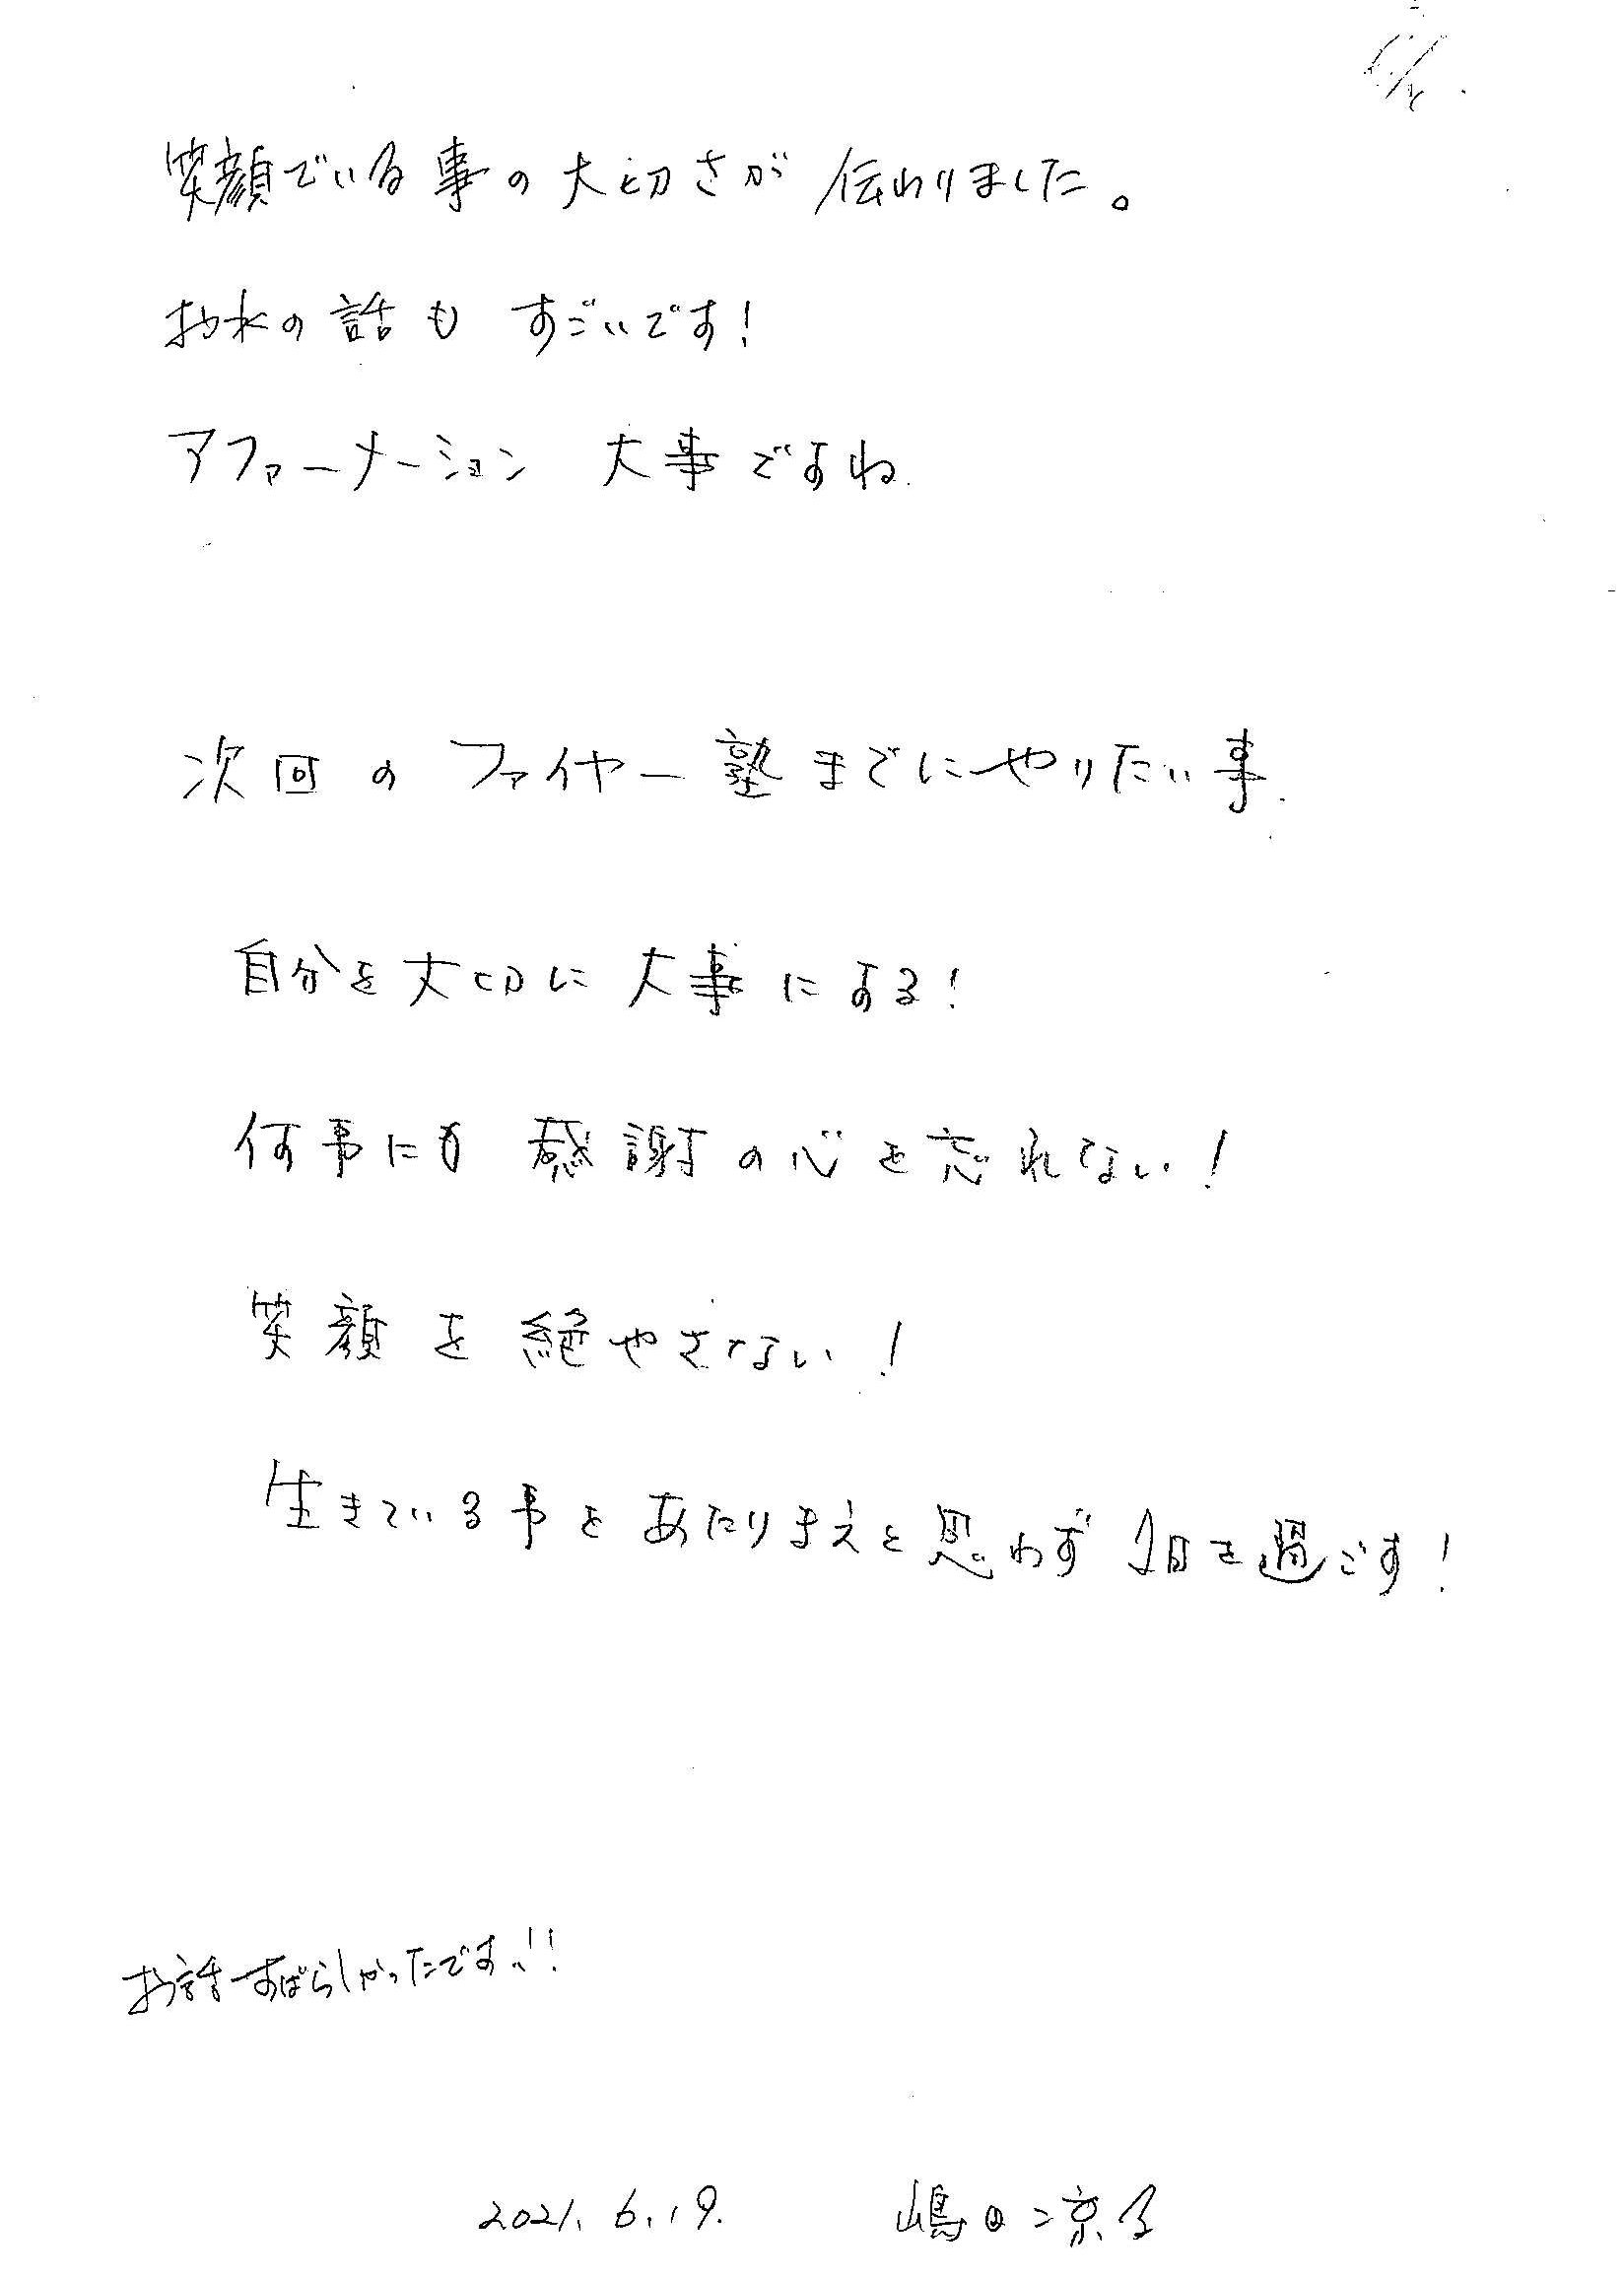 笑顔でいる事の大切さが伝わりました。
お水の話も すごいです!
アファーメーション 大事ですね
次回のファイヤー塾までにやりたい事.
自分を大切に大事にする!
何事にも 感謝の心を忘れない!
笑顔を絶やさない!
生きている事をあたりまえと思わず1日を過ごす!
お話すばらしかったです!!
2021.6.19. 嶋田涼子